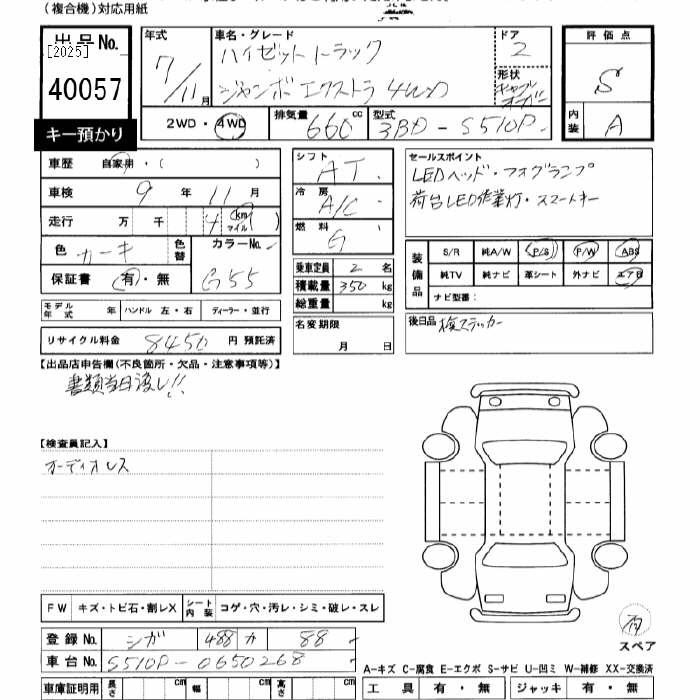 (複合機)対応用紙
出品No.
[2025]
40057
キー預かり
年式
7/11月
車名・グレード
ハイゼットトラック
ジャンボエクストラ 4WD
ドア
2
形状
2WD・4WD
排気量
660 cc
型式
3BD-S510P
評価点
S
内装
A
車歴 自家用・( )
車検 9年 11月
走行 万 千 4 km マイル
色 カーキ 色替 カラーNo.
保証書 有・無 G55
モデル年式 年 ハンドル 左・右 ディーラー・並行
リサイクル料金 8450 円 預託済
シフト AT
冷房 A/C
燃料 G
乗車定員 2 名
積載量 350 kg
総重量 kg
名変期限
月 日
セールスポイント
LEDヘッド・フォグランプ
荷台LED作業灯・スマートキー
装備品
S/R 純A/W P/S P/W ABS
純TV 純ナビ 革シート 外ナビ エアB
ナビ型番:
後日品 検ステッカー
【出品店申告欄(不良箇所・欠品・注意事項等)】
書類当日渡し!!
【検査員記入】
オーディオレス
FW キズ・トビ石・割レX シート内装 コゲ・穴・汚レ・シミ・破レ・スレ
登録No. シガ 488 カ 88
車台No. S510P-0650268
車庫証明用 長さ cm 幅 cm 高さ cm
スペア
A-キズ C-腐食 E-エクボ S-サビ U-凹ミ W-補修 XX-交換済
工具 有・無 ジャッキ 有・無